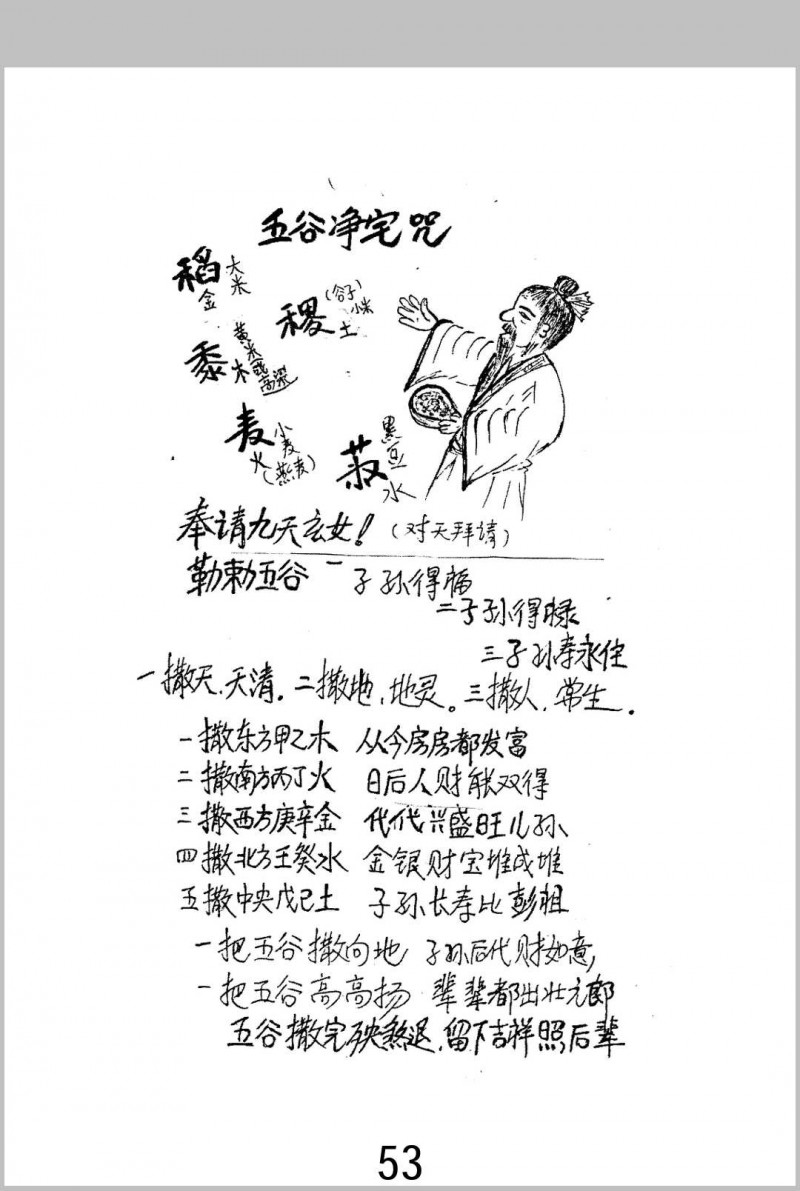 五谷净宅咒
稻 大米
金
稷 (谷子) 小米
土
黍 木 黄米或高梁
麦 小麦
火 (燕麦)
菽 黑豆
水
奉请九天玄女!(对天拜请)
勒勅五谷 一子孙得福
二子孙得禄
三子孙寿永住
一撒天、天清。二撒地、地灵。三撒人、常生。
一撒东方甲乙木 从今房房都发富
二撒南方丙丁火 日后人财能双得
三撒西方庚辛金 代代兴盛旺儿孙
四撒北方壬癸水 金银财宝堆成堆
五撒中央戊己土 子孙长寿比彭祖
一把五谷撒向地 子孙后代财如意,
一把五谷高高扬 辈辈都出壮元郎
五谷撒完殃煞退,留下吉祥照后辈
53